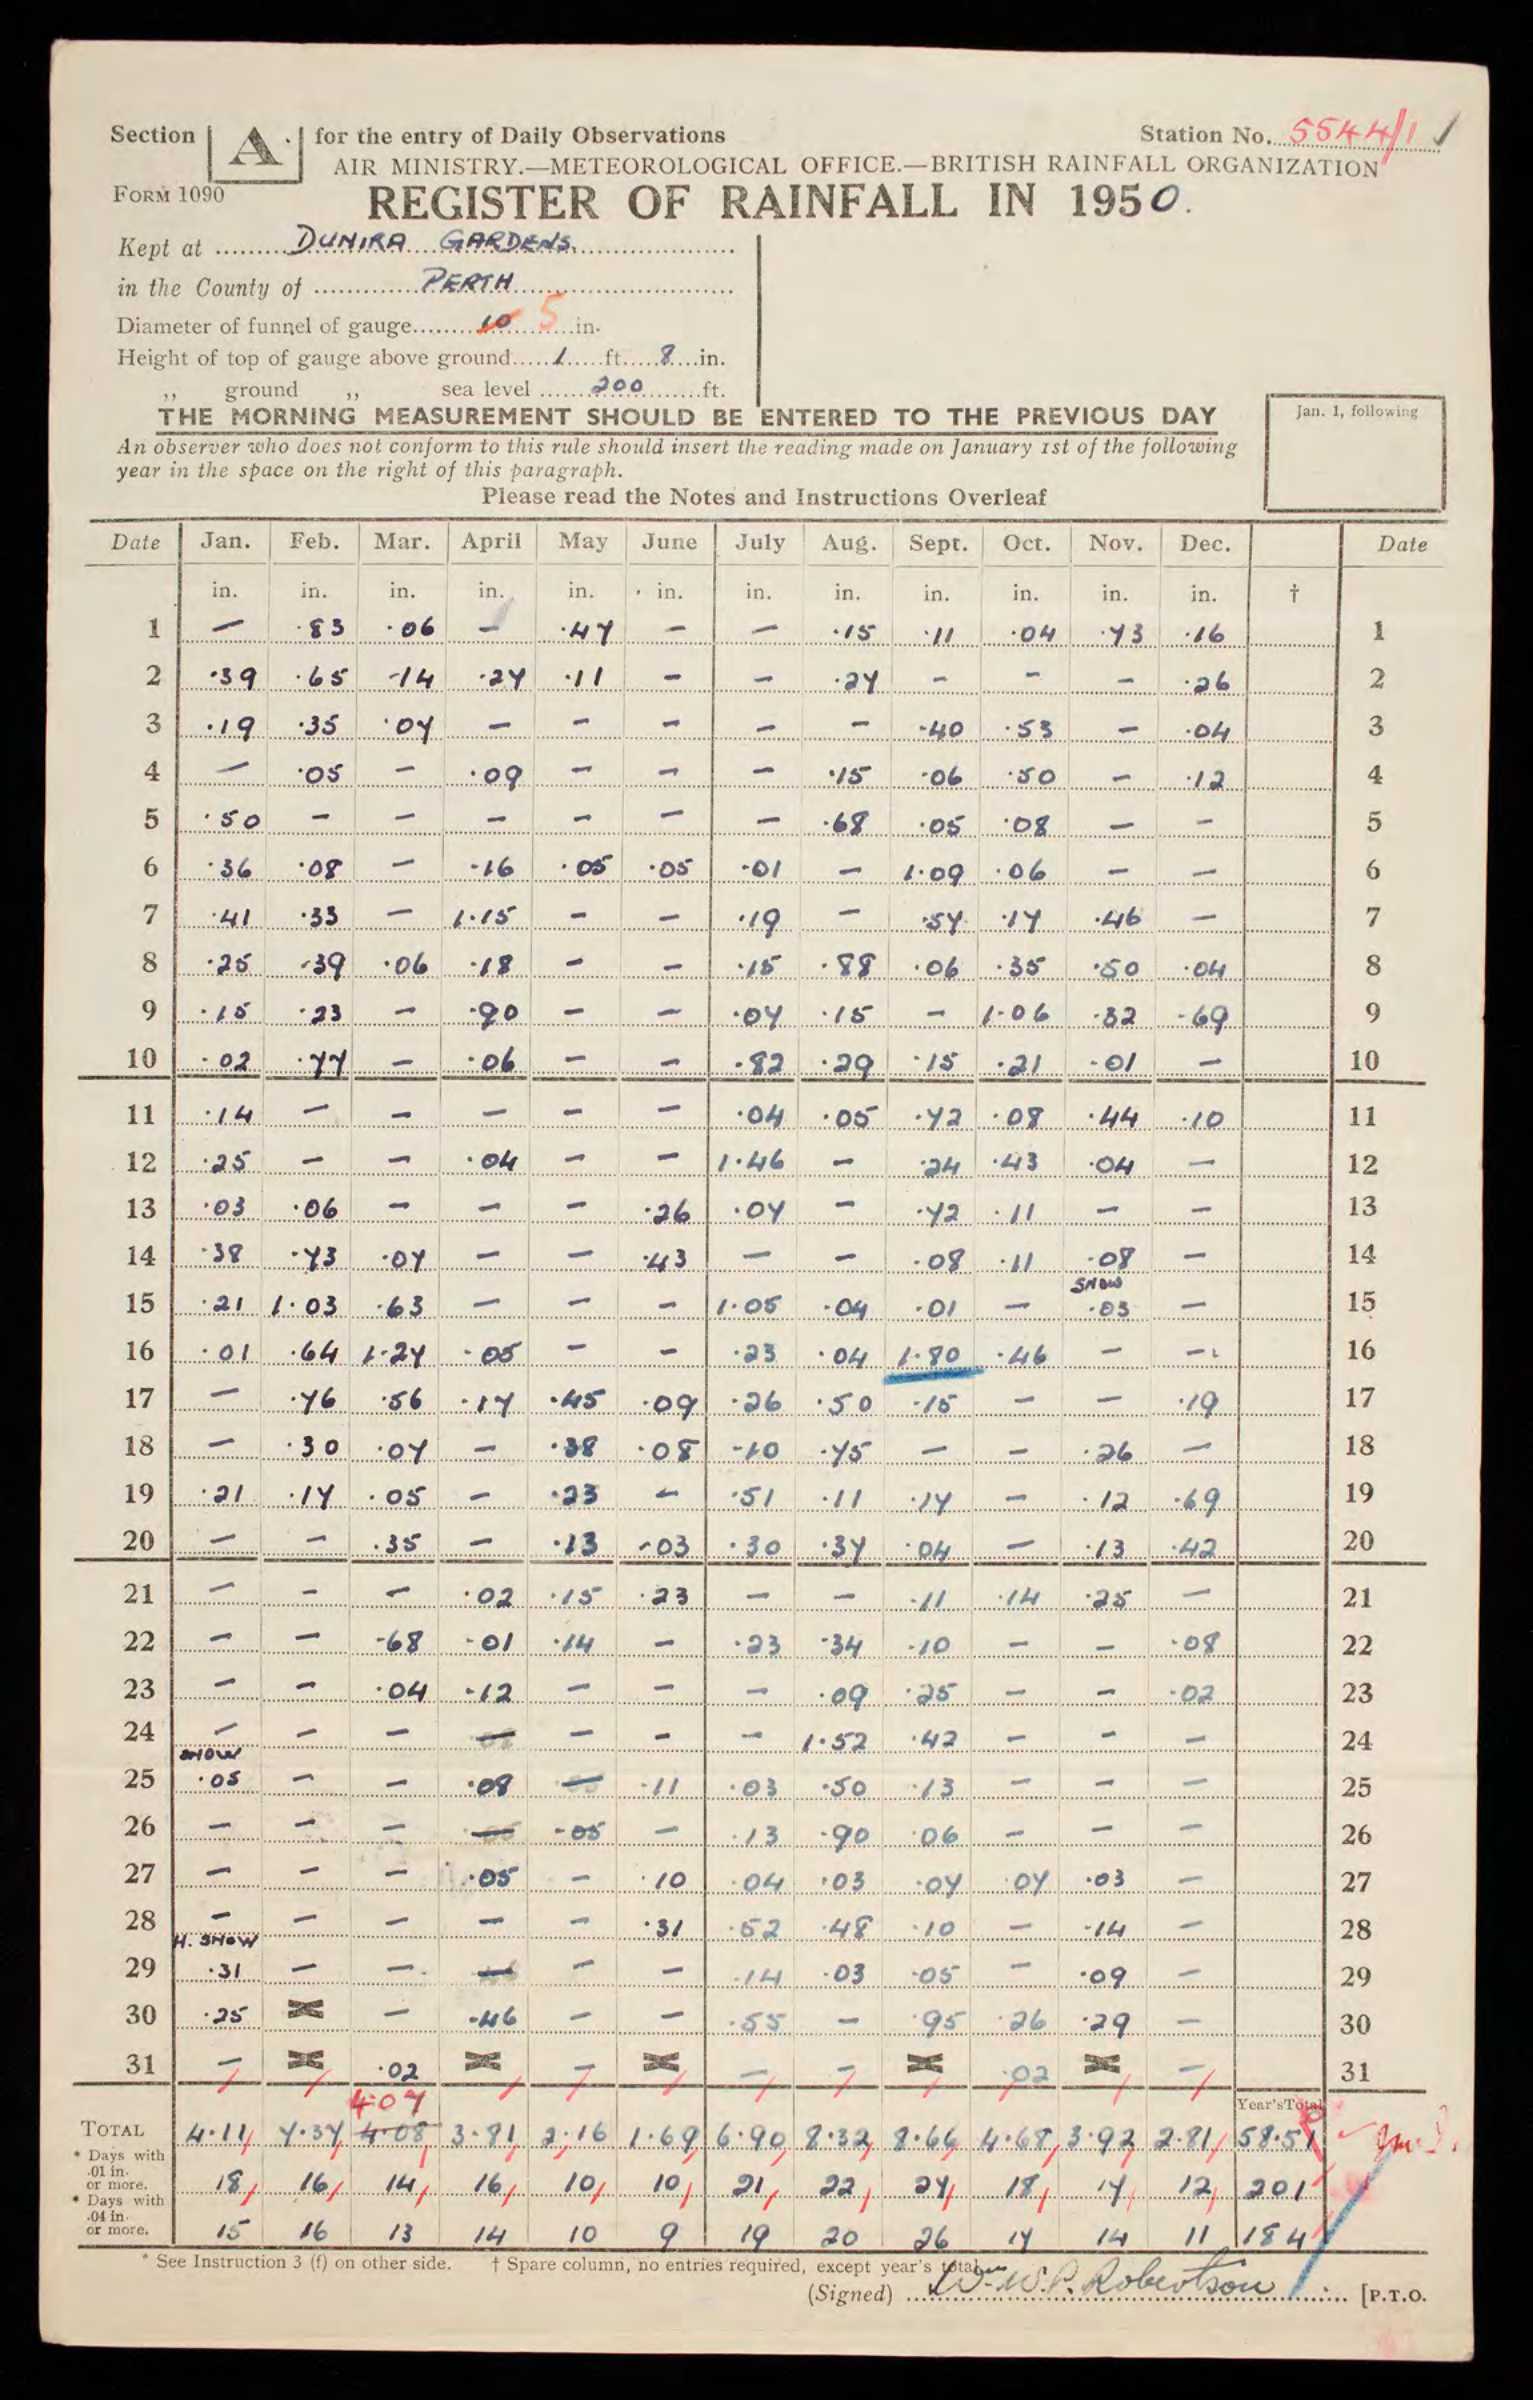 Section A. for the entry of Daily Observations Station No. 5544/1
AIR MINISTRY.—METEOROLOGICAL OFFICE.—BRITISH RAINFALL ORGANIZATION
FORM 1090 REGISTER OF RAINFALL IN 1950.
Kept at DUNIRA GARDENS.
in the County of PERTH
Diameter of funnel of gauge 10 5 in.
Height of top of gauge above ground 1 ft. 8 in.
,, ground ,, sea level 200 ft.
THE MORNING MEASUREMENT SHOULD BE ENTERED TO THE PREVIOUS DAY
Jan. 1, following
An observer who does not conform to this rule should insert the reading made on January 1st of the following
year in the space on the right of this paragraph.
Please read the Notes and Instructions Overleaf
Date Jan. Feb. Mar. April May June July Aug. Sept. Oct. Nov. Dec. Date
in. in. in. in. in. in. in. in. in. in. in. in. †
1 — .83 .06 — .47 — — .15 .11 .04 .73 .16 1
2 .39 .65 .14 .27 .11 — — .27 — — — .26 2
3 .19 .35 .07 — — — — — .40 .53 — .04 3
4 — .05 — .09 — — — .15 .06 .50 — .12 4
5 .50 — — — — — — .68 .05 .08 — — 5
6 .36 .08 — .16 .05 .05 .01 — 1.09 .06 — — 6
7 .41 .33 — 1.15 — — .19 — .57 .17 .46 — 7
8 .25 .39 .06 .18 — — .15 .88 .06 .35 .50 .04 8
9 .15 .23 — .90 — — .07 .15 — 1.06 .32 .69 9
10 .02 .77 — .06 — — .82 .29 .15 .21 .01 — 10
11 .14 — — — — — .04 .05 .72 .08 .44 .10 11
12 .25 — — .04 — — 1.46 — .24 .43 .04 — 12
13 .03 .06 — — — .26 .07 — .72 .11 — — 13
14 .38 .73 .07 — — .43 — — .08 .11 .08 — 14
SNOW
15 .21 1.03 .63 — — — 1.05 .04 .01 — .03 — 15
16 .01 .64 1.27 .05 — — .23 .04 1.80 .46 — — 16
17 — .76 .56 .17 .45 .09 .26 .50 .15 — — .19 17
18 — .30 .07 — .38 .08 .10 .75 — — .26 — 18
19 .21 .17 .05 — .23 — .51 .11 .17 — .12 .69 19
20 — — .35 — .13 .03 .30 .37 .04 — .13 .42 20
21 — — — .02 .15 .23 — — .11 .14 .25 — 21
22 — — .68 .01 .14 — .23 .34 .10 — — .08 22
23 — — .04 .12 — — — .09 .25 — — .02 23
24 — — — — — — — 1.52 .42 — — — 24
SNOW
25 .05 — — .08 — .11 .03 .50 .13 — — — 25
26 — — — — .05 — .13 .90 .06 — — — 26
27 — — — .05 — .10 .04 .03 .07 .07 .03 — 27
28 — — — — — .31 .52 .48 .10 — .14 — 28
H. SNOW
29 .31 — — — — — .14 .03 .05 — .09 — 29
30 .25 X — .46 — — .55 — .95 .26 .29 — 30
31 — X .02 X — X — — X .02 X — 31
4.07 Year's Total
TOTAL 4.11 7.37 4.08 3.81 2.16 1.69 6.90 8.32 8.66 4.68 3.92 2.81 58.51
* Days with .01 in. or more. 18 16 14 16 10 10 21 22 27 18 17 12 201
* Days with .04 in. or more. 15 16 13 14 10 9 19 20 26 17 14 11 184
* See Instruction 3 (f) on other side. † Spare column, no entries required, except year's total
(Signed) Wm W.P. Robertson [P.T.O.